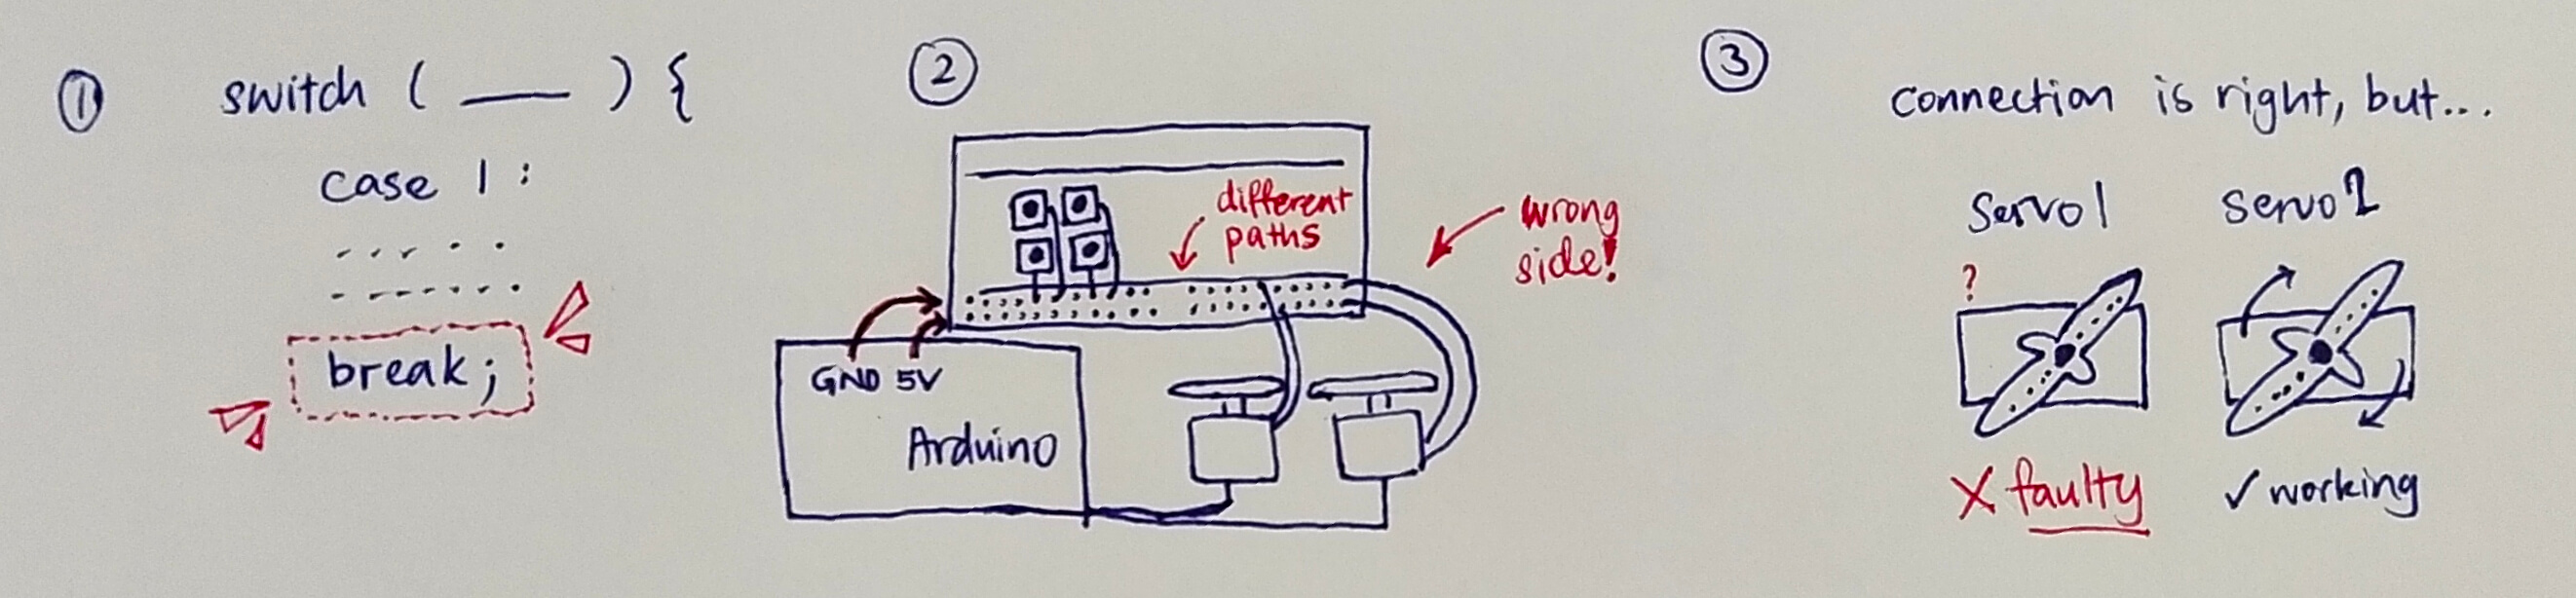 ①
switch ( ___ ) {
case 1 :
break;
②
different
paths
wrong
side!
GND 5V
Arduino
③
connection is right, but...
servo1
servo2
?
X faulty
✓ working